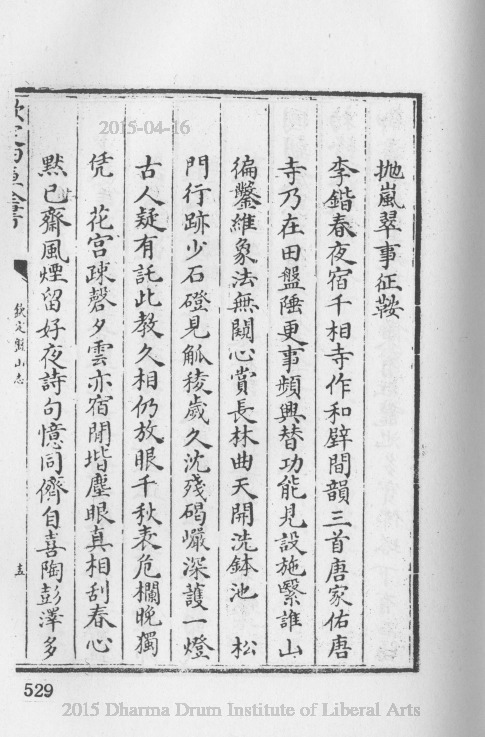 抛嵐翠事征鞍
李鍇春夜宿千相寺作和壁間韻三首唐家佑唐
寺乃在田盤陲更事頻興替功能見設施緊誰山
徧鑿維象法無闕心賞長林曲天開洗鉢池　松
門行跡少石磴見觚稜歲久沈殘碣巖深護一燈
古人疑有託此教久相仍放眼千秋表危欄晚獨
凭　花宮疎磬夕雲亦宿閒堦塵眼真相刮春心
黙已齋風煙留好夜詩句憶同儕自喜陶彭澤多
欽定四庫全書
欽定盤山志
五
529
2015-04-16
2015 Dharma Drum Institute of Liberal Arts